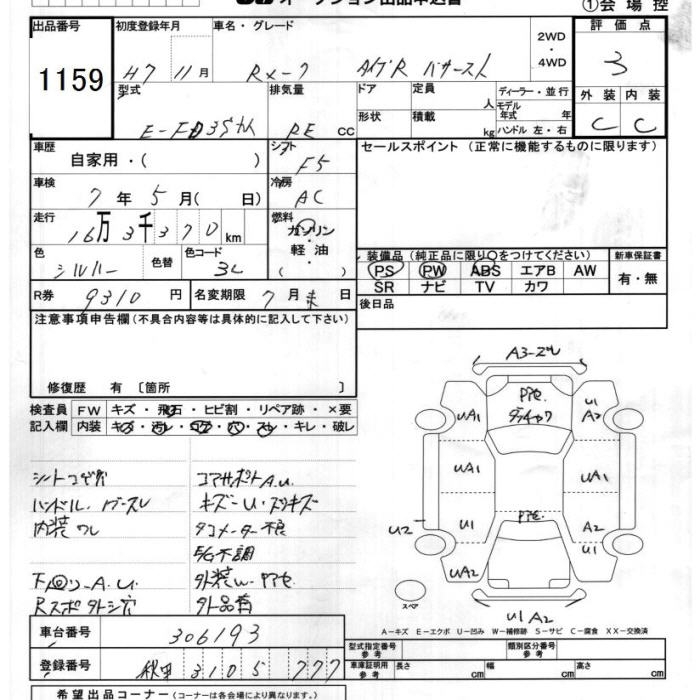 オークション出品申込書
①会場控
出品番号
1159
初度登録年月
H7 11月
車名・グレード
RX-7 タイプR バサースト
2WD
・
4WD
評価点
3
外装 内装
C C
型式
E-FD3Sカイ
排気量
RE cc
ドア
定員
人
形状
積載
kg
ディーラー・並行
モデル年式 年
ハンドル 左・右
車歴
自家用・( )
シフト
F5
車検
7年5月( 日)
冷房
AC
走行
16万3千370km
燃料
ガソリン
・
軽油
( )
色
シルバー
色替
色コード
3L
R券
9310円
名変期限
7月末日
セールスポイント (正常に機能するものに限ります)
装備品 (純正品に限り○をつけてください)
PS PW ABS エアB AW
SR ナビ TV カワ
新車保証書
有・無
後日品
注意事項申告欄 (不具合内容等は具体的に記入して下さい)
修復歴 有 〔箇所 〕
検査員記入欄
FW キズ・飛石・ヒビ割・リペア跡・×要
内装 キズ・汚レ・コゲ・穴・スレ・キレ・破レ
シートコゲ穴
ハンドル
内装ワレ
コアサポートA.U.
キズ-U・スリキズ
タコメーター不良
不調
下回り-A.U.
外装W.PPセ
Rスポ外シ穴
外品有
A3-ズレ
PPセ
UA1
U1
A2
UA1
UA1
PPセ
U2
U1
A2
U1
UA2
スペア
U1 A2
A-キズ E-エクボ U-凹み W-補修跡 S-サビ C-腐食 XX-交換済
車台番号
306193
登録番号
秋田 310 5 777
型式指定番号
参考
類別区分番号
参考
車庫証明用
参考
長さ cm
幅 cm
高さ cm
希望出品コーナー (コーナーは各会場により異なります。)